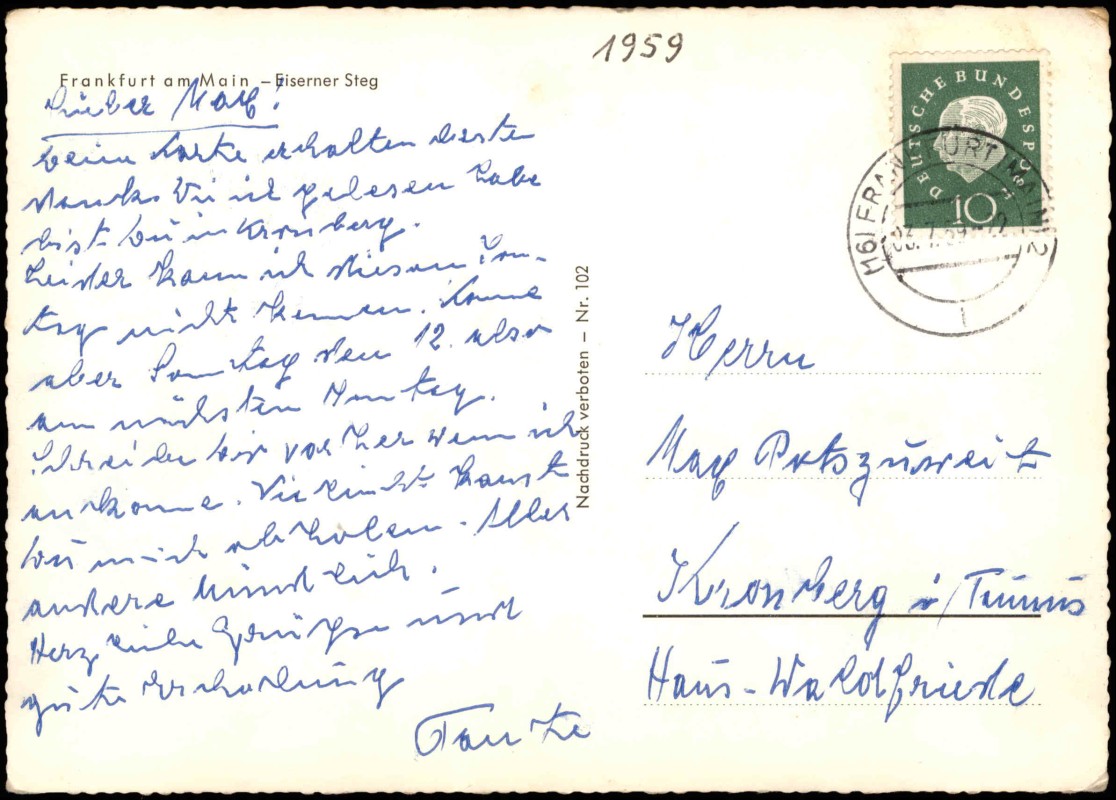 1959
Frankfurt am Main – Eiserner Steg
Lieber Max!
deine Karte erhalten besten
Dank. Wie ich gelesen habe
bist Du in Kronberg.
Leider kann ich diesen Son-
tag nicht kommen. Komme
aber Sonntag den 12. also
am nächsten Sontag.
Schreibe dir vorher wenn ich
ankomme. Vielleicht kanst
Du mich abholen. Alles
andere Mündlich.
Herzliche Grüße und
gute Erholung
Tante
Nachdruck verboten – Nr. 102
DEUTSCHE BUNDESPOST
10
(16) FRANKFURT (MAIN) 2
7.59
Herrn
Max Potszuweit
Kronberg i/Taunus
Haus-Waldfriede